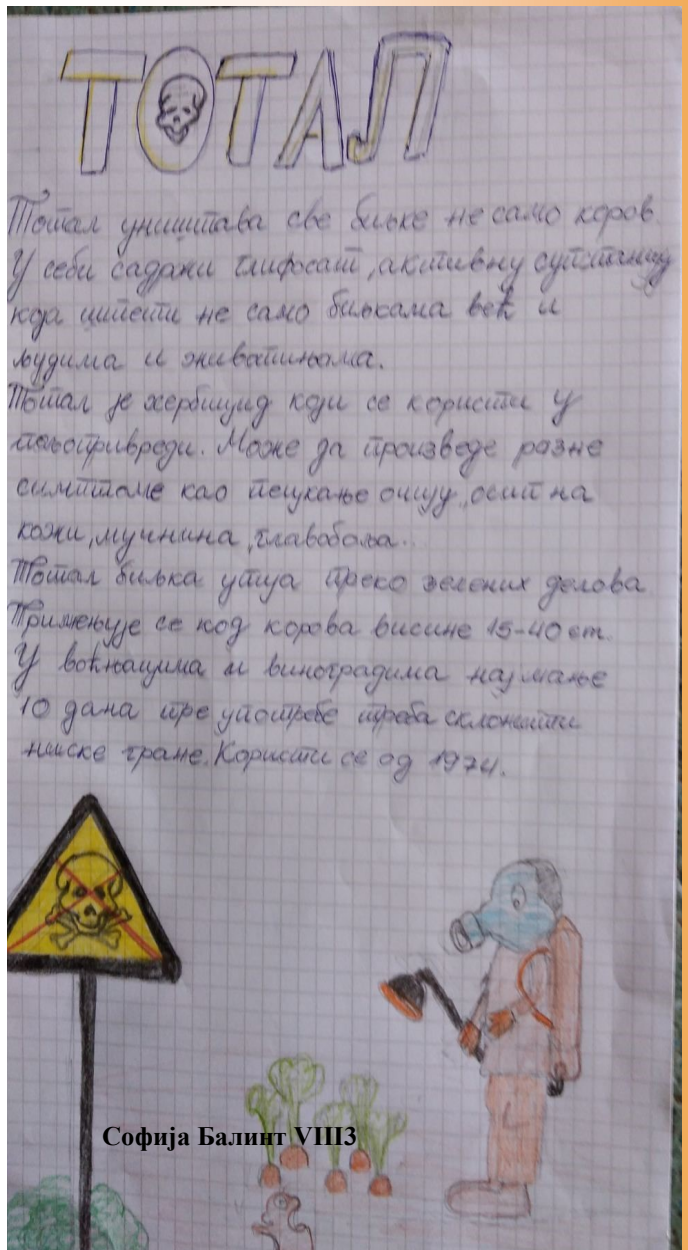 ТОТАЛ
Тотал уништава све биљке не само коров.
У себи садажи глифосат, активну супстанцу
која штети не само биљкама већ и
људима и животињама.
Тотал је хербицид који се користи у
пољопривреди. Може да произведе разне
симптоме као пецкање очију, осип на
кожи, мучнина, главобоља..
Тотал биљка упија преко зелених делова
Примењује се код корова висине 15-40 cm.
У воћњацима и виноградима најмање
10 дана пре употребе треба склонити
ниске гране. Користи се од 1974.
Софија Балинт VIII3